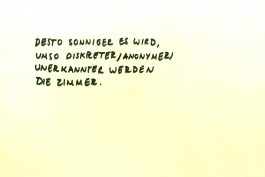 DESTO SONNIGER ES WIRD,
UMSO DISKRETER/ANONYMER/
UNERKANNTER WERDEN
DIE ZIMMER.